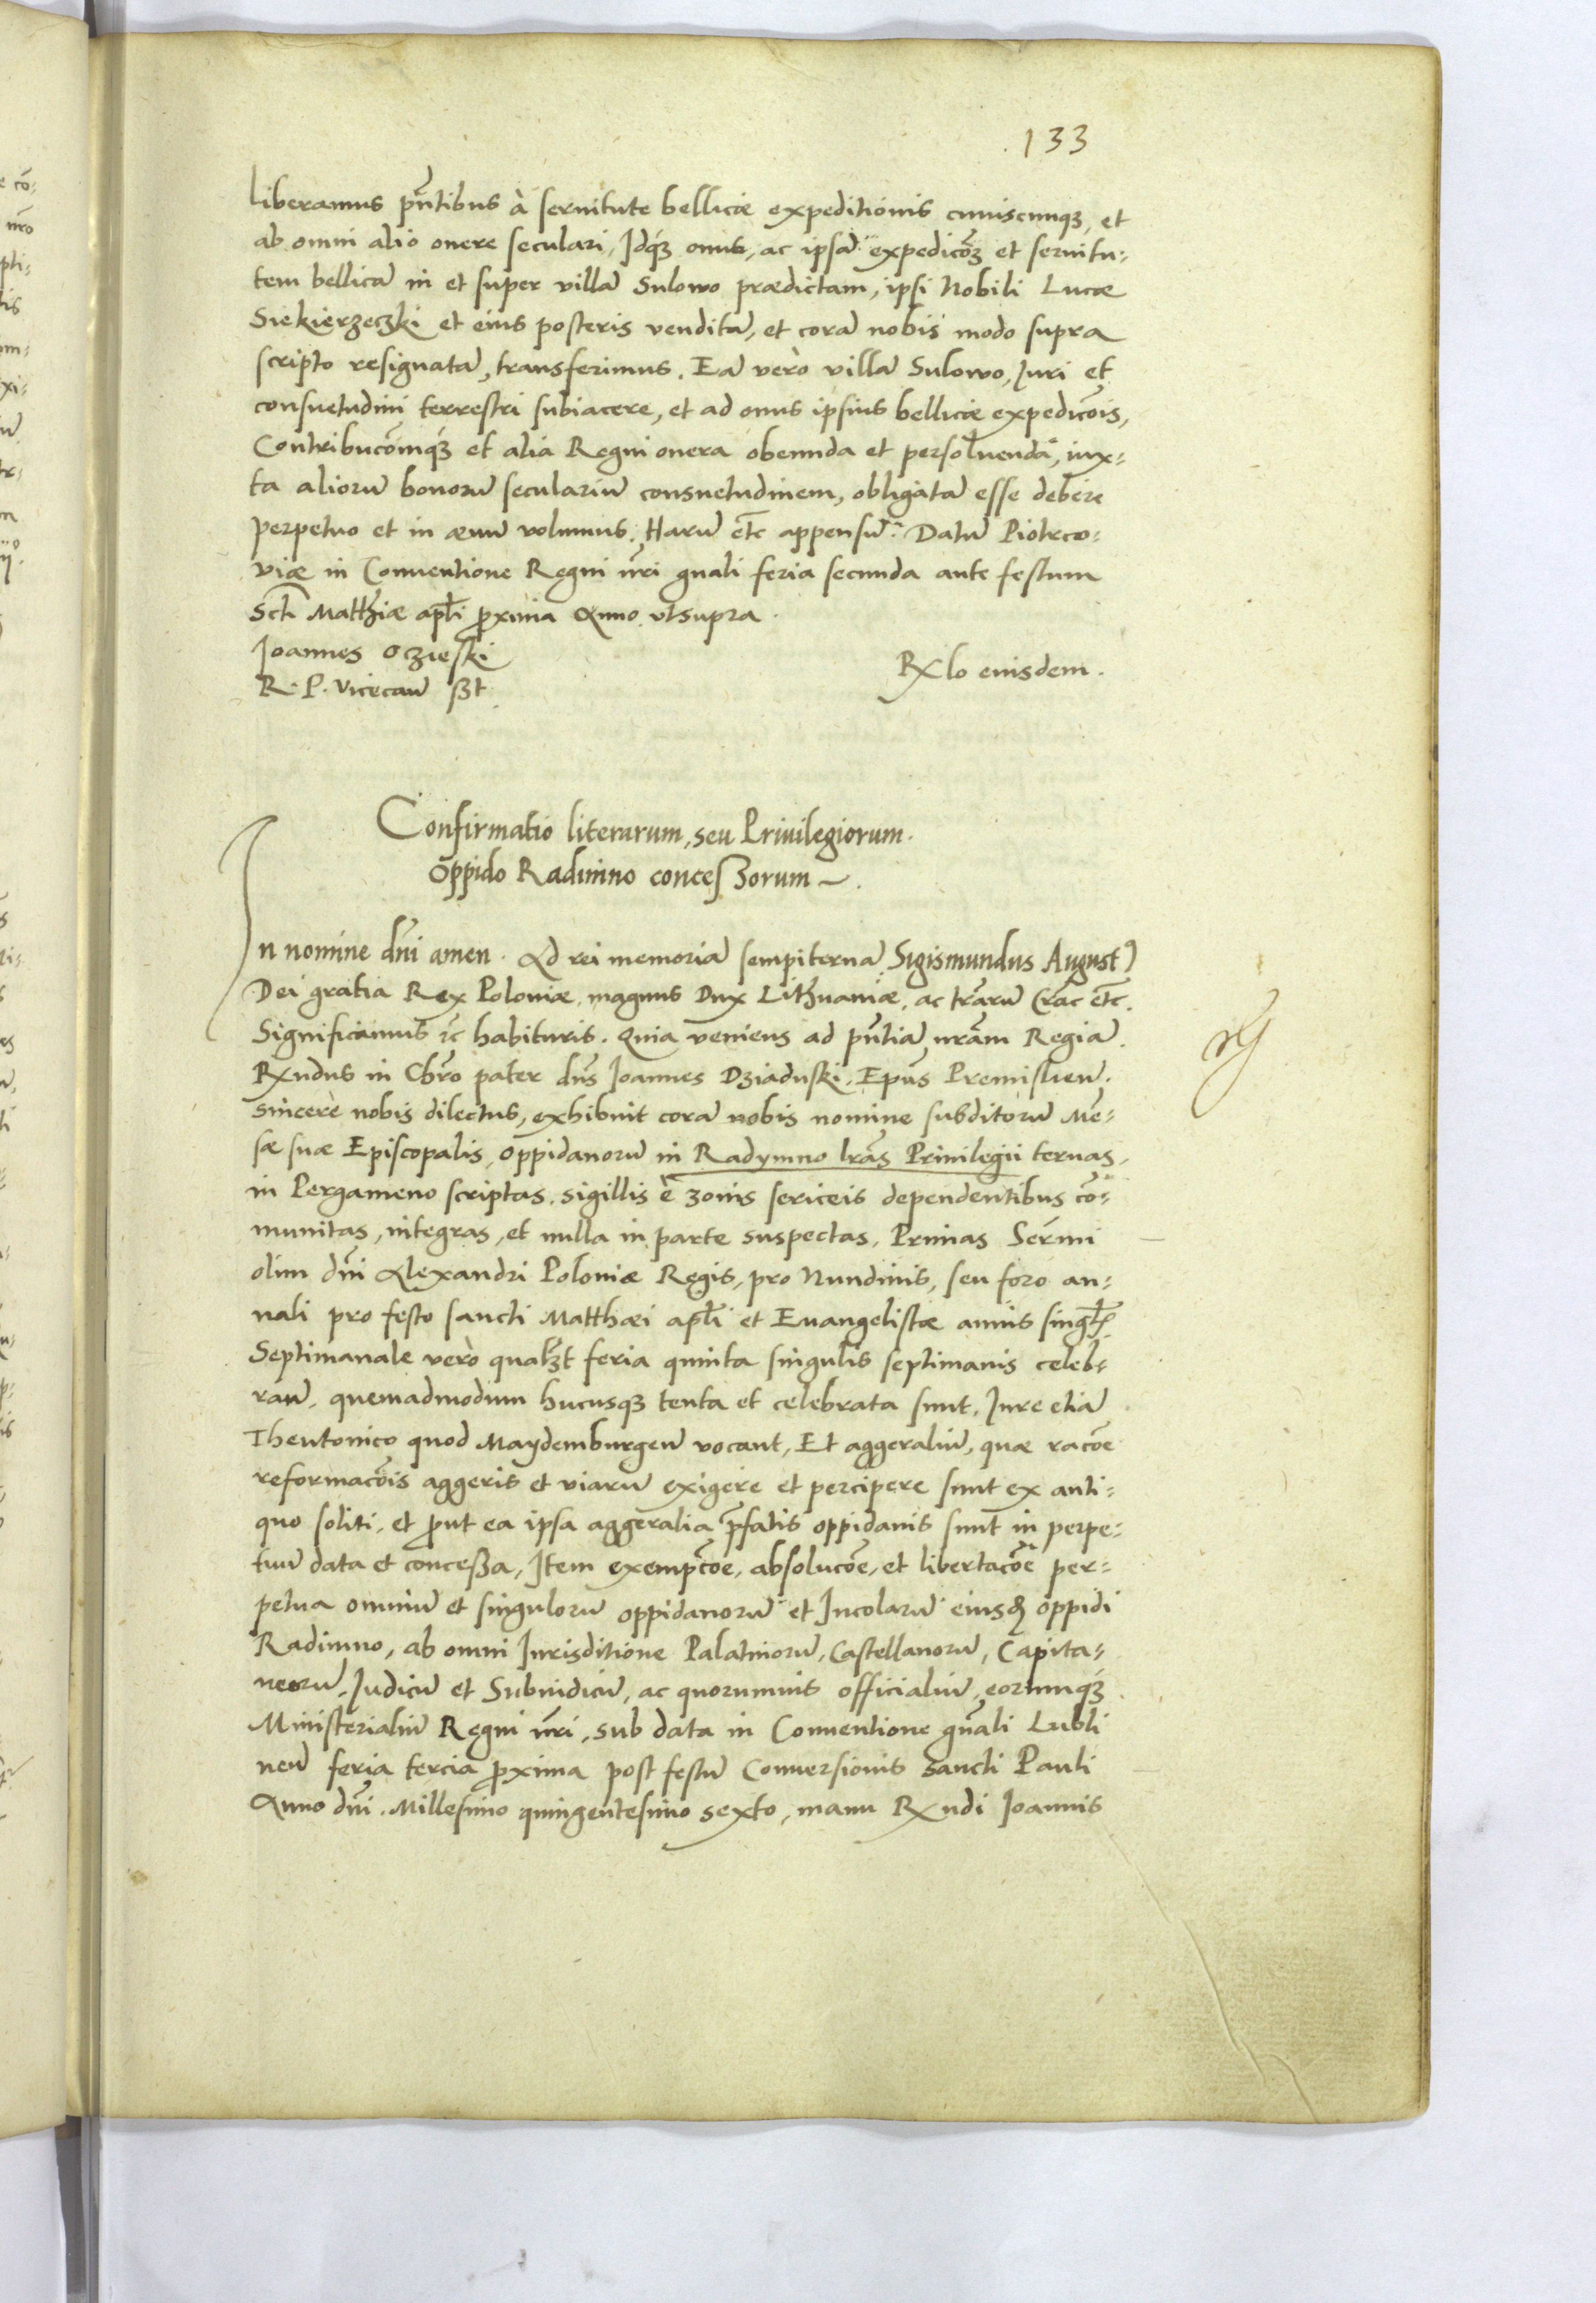 133
liberamus pñtibus à seruitute bellicæ expeditionis cuiuscunqꝫ, et
ab omni alio onere seculari, Idqꝫ onus, ac ipsã expedicõꝫ et seruitu:
tem bellicã in et super villã Sulowo prædictam, ipsi Nobili Lucæ
Siekierzeczki et eius posteris venditã, et corã nobis modo supra
scripto resignatã, transferimus. Eã verò villã Sulowo, Iuri et
consuetudini terrestri subiacere, et ad onus ipsius bellicæ expedicõis,
Contribucõmqꝫ et alia Regni onera obeunda et persoluenda, iux:
ta aliorũ bonorũ seculariũ consuetudinem, obligatã esse debere
perpetuo et in æuũ volumus. Harũ etc̃ appensũ. Datũ Piotrco:
viæ in Conuentione Regni nr̃i gnali feria secunda ante festum
Scti Matthiæ apłi proxima Anno vtsupra.
Joannes Oczieski
R. P. Vicecanc̃ sßt.
Rxlo eiusdem.
Confirmatio literarum, seu Priuilegiorum.
Oppido Radimno conceſsorum
In nomine dñi amen. Ad rei memoriã sempiternã Sigismundus Augustꝰ
Dei gratia Rex Poloniæ, magnus Dux Lithuaniæ, ac trarũ Crac etc̃.
Significamus ꝛc habituris. Quia veniens ad pñtiã nrãm Regiã.
Rxndus in Chrõ pater dñs Joannes Dziaduski. Epũs Premislien.
sincerè nobis dilectus, exhibuit corã nobis nomine subditorũ Mẽ:
sæ suæ Episcopalis, oppidanorũ in Radymno lrãs Priuilegii ternas,
in Pergameno scriptas, sigillis è zonis sericeis dependentibus cõ:
munitas, integras, et nulla in parte suspectas, Primas Serm̃i
olim dñi Alexandri Poloniæ Regis, pro Nundinis, seu foro an:
nali pro festo sancti Matthæi apłi et Euangelistæ annis singłis
Septimanale verò qualꝫt feria quinta singulis septimanis celeb:
rañ, quemadmodum hucusqꝫ tenta et celebrata sunt, Iure etiã
Theutonico quod Maydemburgeñ vocant, Et aggeraliũ, quæ racõe
reformacõis aggeris et viarũ exigere et percipere sunt ex anti:
quo soliti, et prout ea ipsa aggeralia p̃fatis oppidanis sunt in perpe:
tuũ data et conceßa, Item exempcõe, absolucõe, et libertacõe per:
petua omniũ et singulorũ oppidanorũ et Incolarũ eiusdꝫ oppidi
Radimno, ab omni Iurisditione Palatinorũ, Castellanorũ, Capita:
neorũ, Iudicũ et Subiudicũ, ac quorumuis officialiũ, eorumqꝫ
Ministerialiũ Regni nr̃i, sub data in Conuentione gñali Lubli
neñ feria tercia proxima post festũ Conuersionis Sancti Pauli
Anno dñi. Millesimo quingentesimo sexto, manu Rxndi Joannis